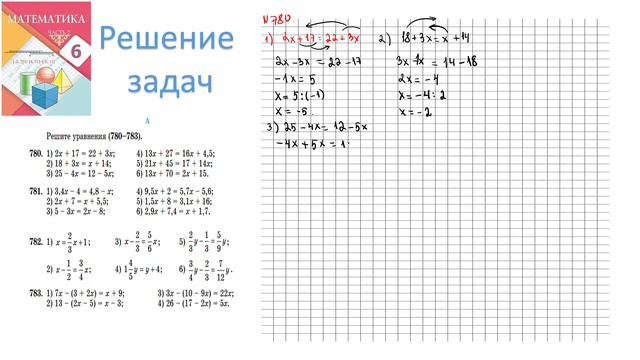 МАТЕМАТИКА
ЧАСТЬ 2
6
Решение
задач
А
Решите уравнения (780–783).
780. 1) 2x + 17 = 22 + 3x; 4) 13x + 27 = 16x + 4,5;
2) 18 + 3x = x + 14; 5) 21x + 45 = 17 + 14x;
3) 25 – 4x = 12 – 5x; 6) 13x + 70 = 2x + 15.
781. 1) 3,4x – 4 = 4,8 – x; 4) 9,5x + 2 = 5,7x – 5,6;
2) 2x + 7 = x + 5,5; 5) 1,5x + 8 = 3,1x + 16;
3) 5 – 3x = 2x – 8; 6) 2,9x + 7,4 = x + 1,7.
782. 1) x = 2/3 x + 1; 3) x – 2/3 = 5/6 x; 5) 2/3 y – 1/3 = 5/9 y;
2) x – 1/2 = 3/4 x; 4) 1 4/5 y = y + 4; 6) 3/4 y – 2/3 = 7/12 y.
783. 1) 7x – (3 + 2x) = x + 9; 3) 3x – (10 – 9x) = 22x;
2) 13 – (2x – 5) = x – 3; 4) 26 – (17 – 2x) = 5x.
№780
1) 2x + 17 = 22 + 3x
2x – 3x = 22 – 17
–1x = 5
x = 5 : (–1)
x = –5.
2) 18 + 3x = x + 14
3x – 1x = 14 – 18
2x = –4
x = –4 : 2
x = –2
3) 25 – 4x = 12 – 5x
–4x + 5x = 1